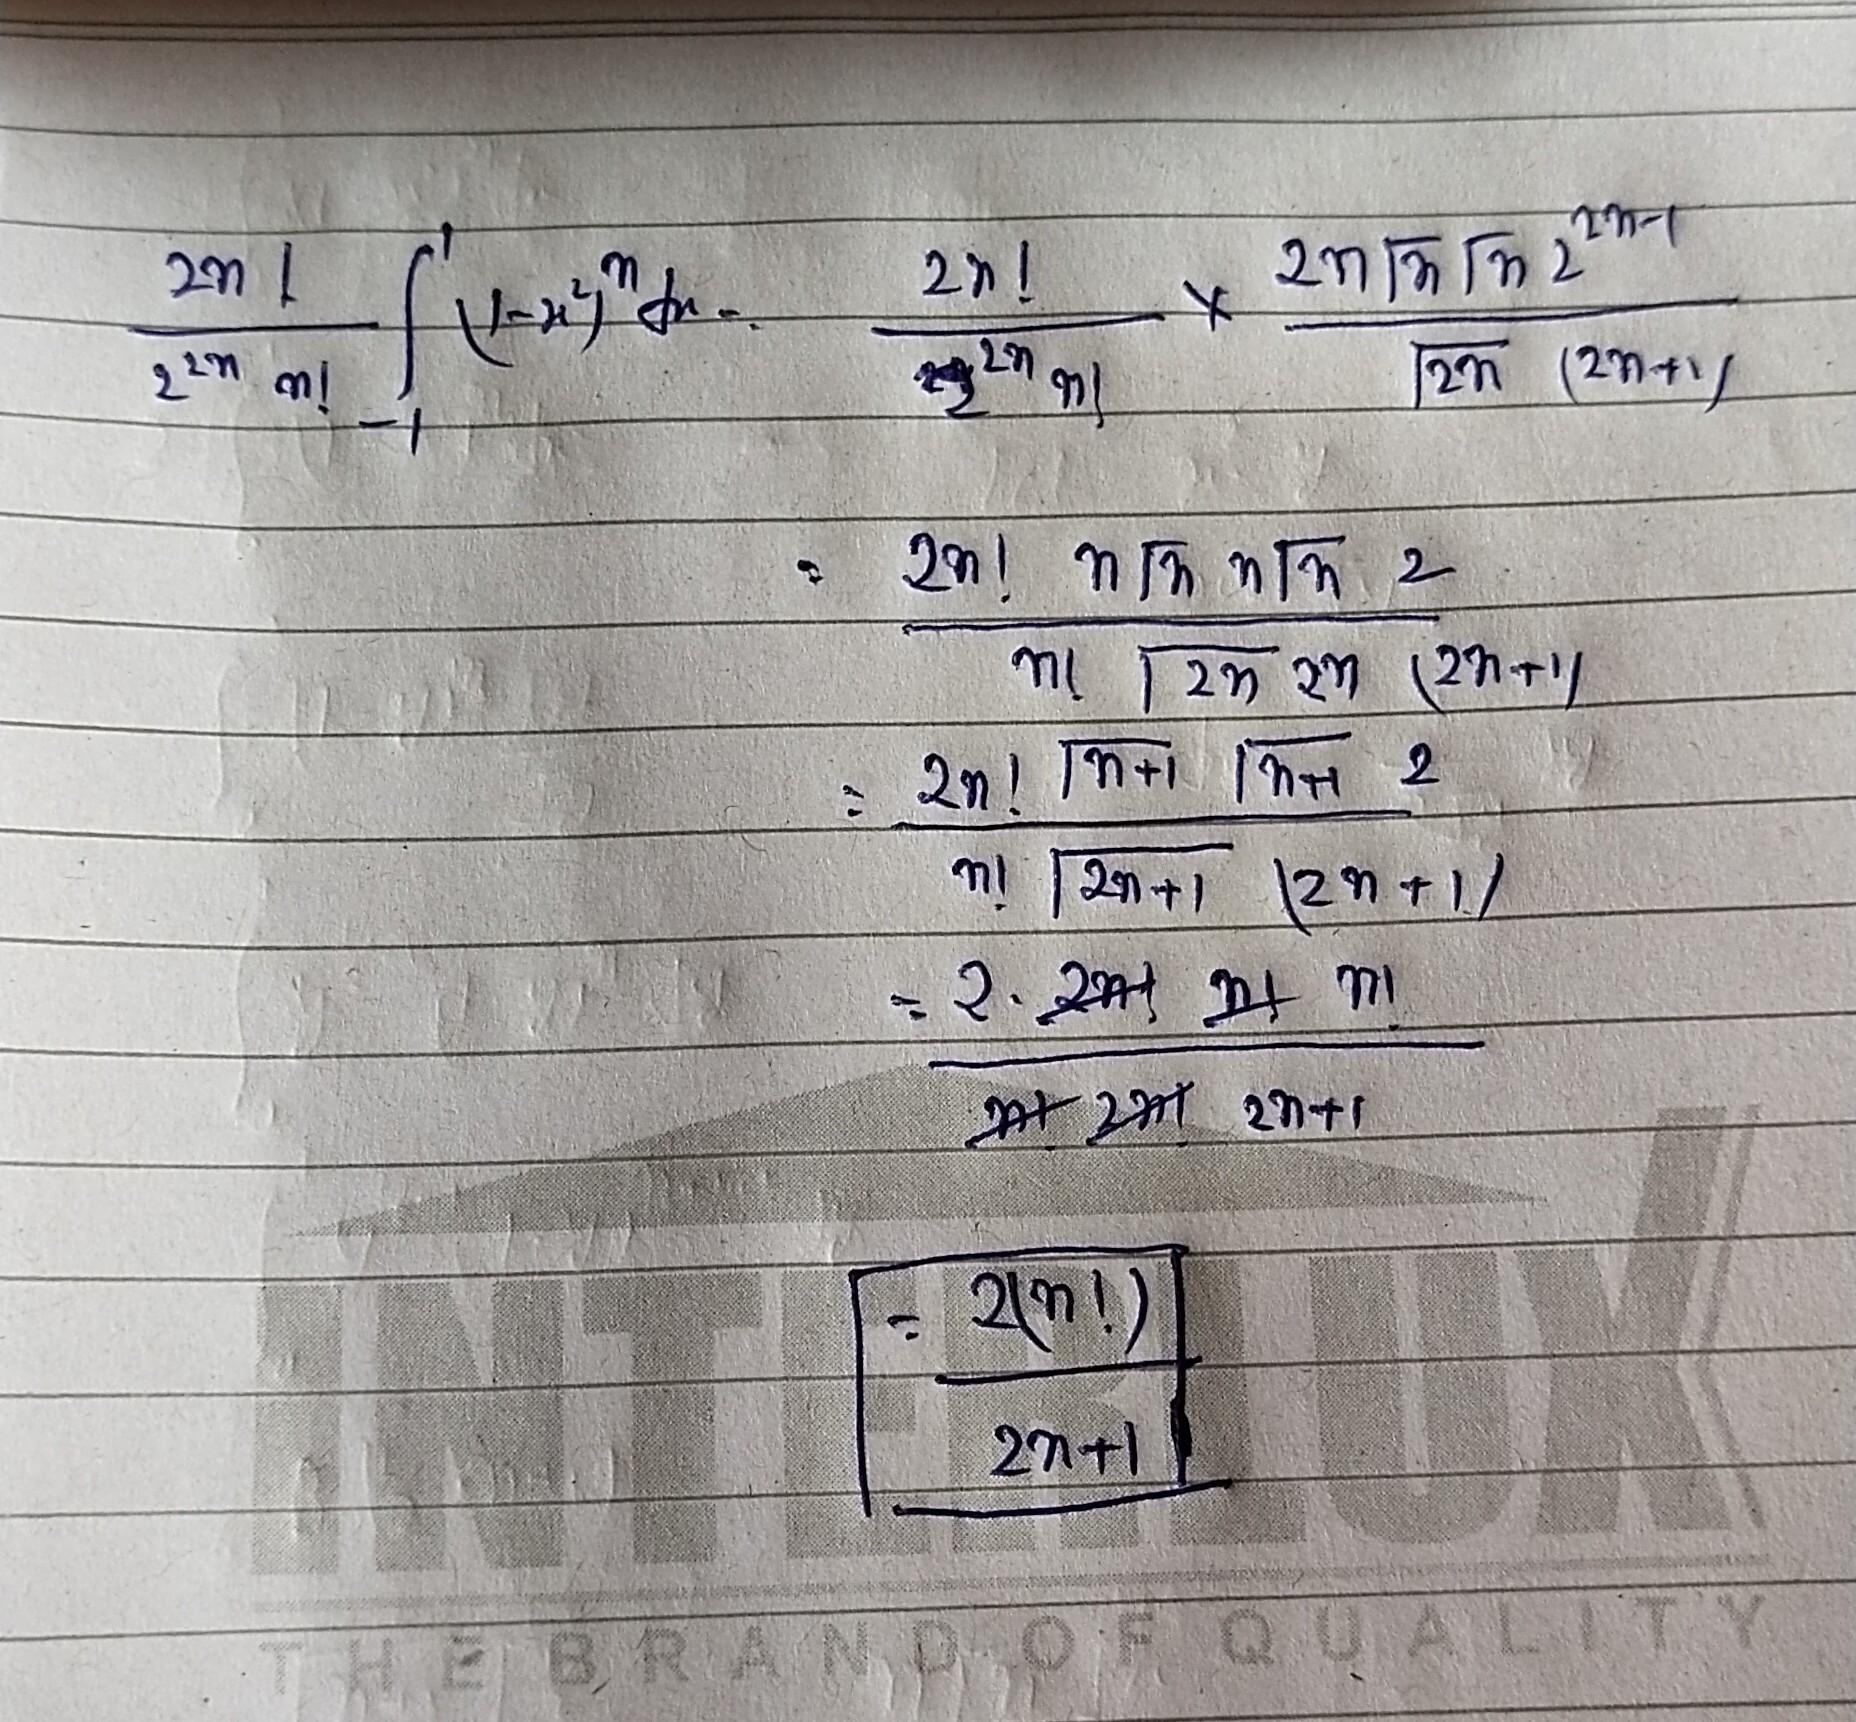 2n! / 2^{2n} n! ∫_{-1}^{1} (1-x²)^n dx = 2n! / 2^{2n} n! × 2n Γn Γn 2^{2n-1} / Γ2n (2n+1)
= 2n! n Γn n Γn 2 / n! Γ2n 2n (2n+1)
= 2n! Γn+1 Γn+1 2 / n! Γ2n+1 (2n+1)
= 2. 2n! n! n! / n! 2n! 2n+1
= 2(n!) / 2n+1
INTERLUX
THE BRAND OF QUALITY